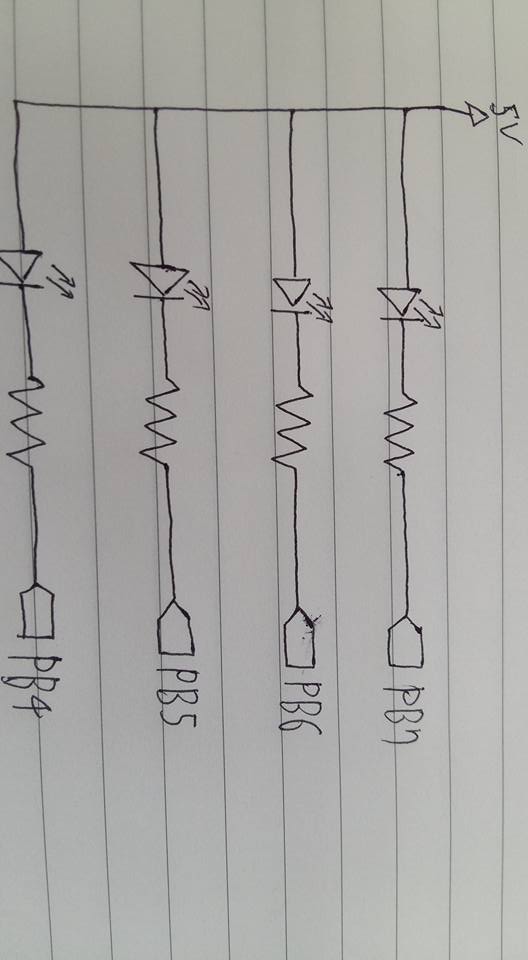 5V
PB7
PB6
PB5
PB4